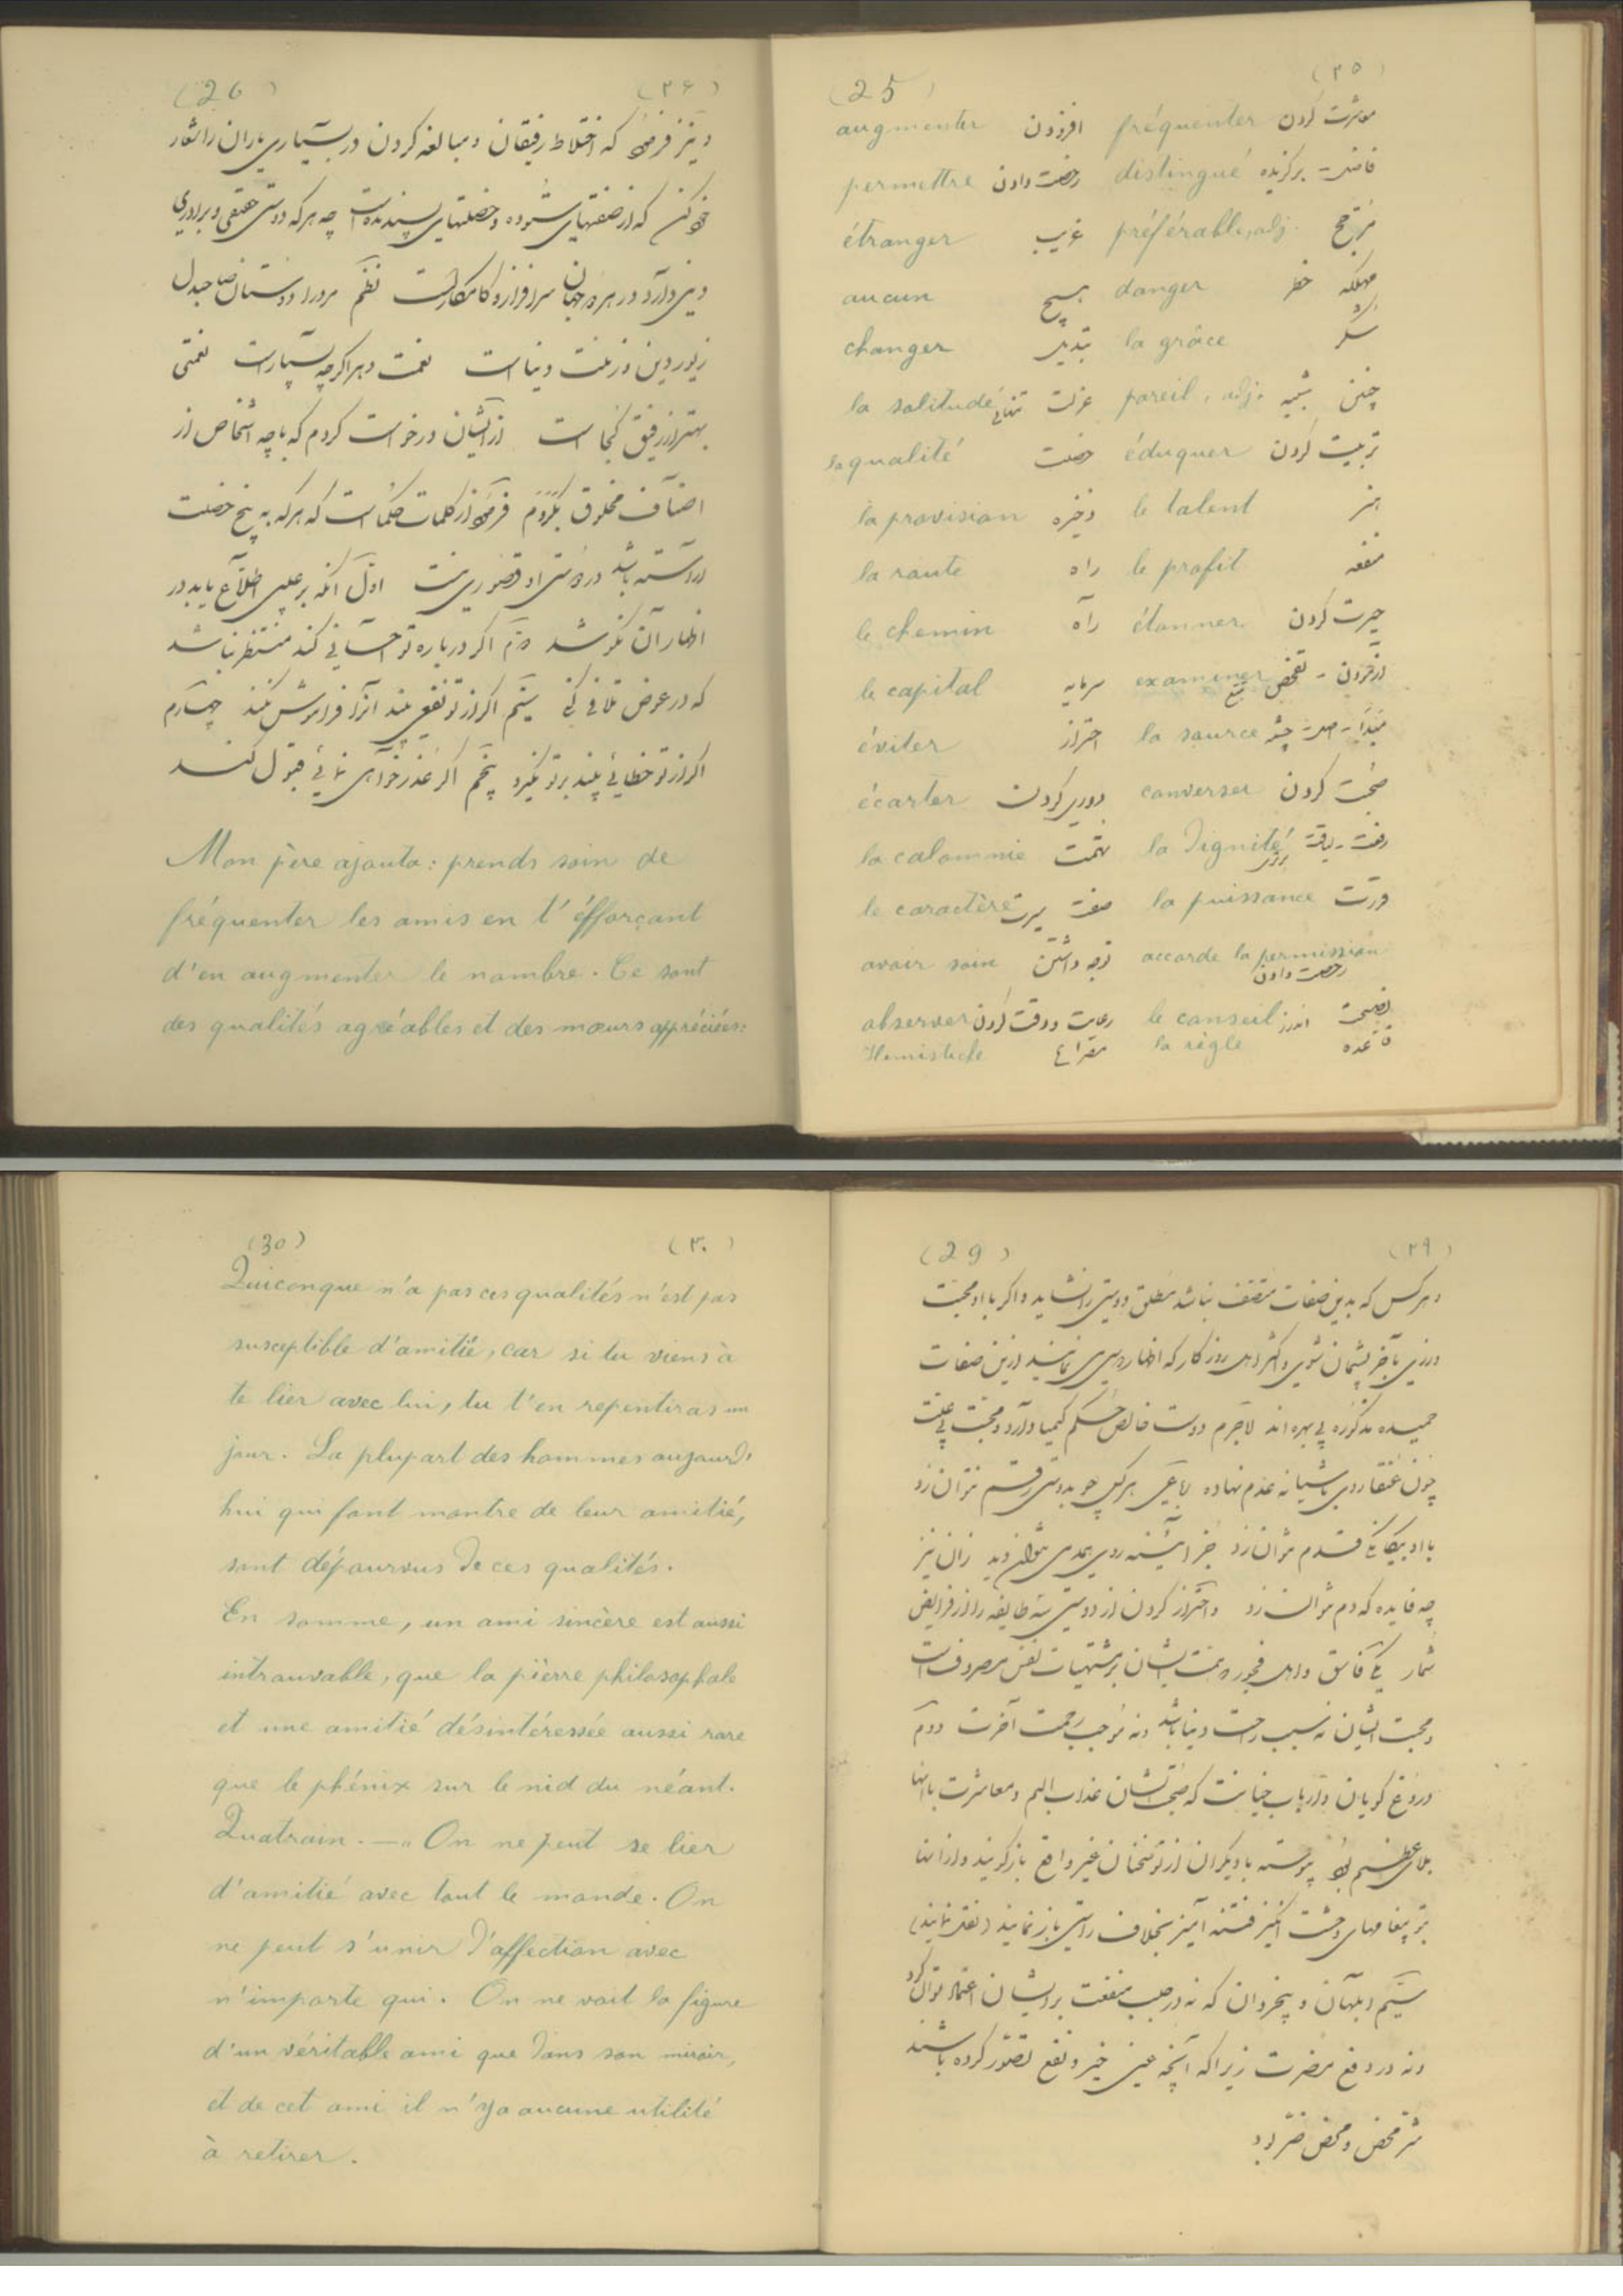 (25) (۲۵)
augmenter افزودن fréquenter معاشرت کردن
permettre رخصت دادن distingué فاضل - برگزیده
étranger غریب préférable, adj. مرجح
aucun هیچ danger خطر مهلکه
changer تبدیل la grâce شکر
la solitude عزلت تنهائی pareil, adj. شبیه چنین
la qualité خصلت éduquer تربیت کردن
la provision ذخیره le talent هنر
la route راه le profit منفعه
le chemin راه étonner حیرت کردن
le capital سرمایه examiner تفحص
éviter احتراز la source چشمه
écarter دوری کردن converser صحبت کردن
la calomnie تهمت la dignité رفعت - لیاقت
le caractère صفت سیرت la puissance قدرت
avoir soin توجه داشتن accorde la permission
رخصت دادن
observer رعایت و دقت کردن le conseil اندرز نصیحت
Hémistiche مصراع la règle قاعده
(26) (۲۶)
و نیز که اختلاط رفیقان و مبالغه کردن در بسیاری یاران را شعار
که از صفتهای ستوده و خصلتهای پسندیده است چه هرکه دوستی حقیقی و برادری
سرافراز و کامکار است نظم مرد را دوستان صاحبدل
زیور دین و زینت دنیا است نعمت دهر اگرچه بسیار است نعمتی
بهتر از رفیق کجا است از ایشان درخواست کردم که با چه اشخاص از
اصناف مخلوق بگروم از کلمات حکما است که هرکه به پنج خصلت
آراسته باشد در دوستی او قصوری نیست اول آنکه بر عیبی اطلاع یابد در
اظهار آن نکوشد دوم اگر درباره تو احسانی کند منتظر نباشد
که در عوض تلافی کنی سیم اگر از تو نفعی بیند آنرا فراموش نکند چهارم
اگر از تو خطائی بیند بر تو نگیرد پنجم اگر عذرخواهی نمائی قبول کند
Mon père ajouta: prends soin de
fréquenter les amis en t'éfforçant
d'en augmenter le nombre. Ce sont
des qualités agréables et des mœurs appréciées:
(29) (۲۹)
و هرکس که بدین صفات متصف نباشد مطلق دوستی را نشاید و اگر با او محبت
ورزی بآخر پشیمان شوی و اکثر اهل روزگار که اظهار دوستی نمایند ازین صفات
حمیده مذکوره بی بهره اند لاجرم دوست خالص حکم کیمیا دارد و محبت بی علت
چون عنقا روی بآشیانه عدم نهاده رباعی توان زد
جز آئینه روی همدمی نتوان دید زان نیز
چه فایده که دم نتوان زد و احتراز کردن از دوستی سه طایفه را از فرایض
شمار یکی فاسق و اهل فجور که همت ایشان بر مشتهیات نفس مصروف است
و محبت ایشان نه سبب راحت دنیا باشد و نه موجب رحمت آخرت دوم
دروغ گویان و ارباب خیانت که صحبت ایشان عذاب الیم و معاشرت با آنها
بلای عظیم بود پیوسته با دیگران از تو سخنان غیر واقع بازگویند و از آنها
بتو پیغامهای وحشت انگیز فتنه آمیز بخلاف راستی باز نمایند (نقل نمایند)
سیم ابلهان و بیخردان که نه در جلب منفعت بر ایشان اعتماد توان کرد
و نه در دفع مضرت زیرا که آنچه عین خیر و نفع تصور کرده باشند
شر محض و محض ضرر بود
(30) (۳۰)
Quiconque n'a pas ces qualités n'est pas
susceptible d'amitié, car si tu viens à
te lier avec lui, tu t'en repentiras un
jour. La plupart des hommes aujourd'
hui qui font montre de leur amitié,
sont dépourvus de ces qualités.
En somme, un ami sincère est aussi
introuvable, que la pierre philosophale
et une amitié désintéressée aussi rare
que le phénix sur le nid du néant.
Quatrain. — „ On ne peut se lier
d'amitié avec tout le monde. On
ne peut s'unir d'affection avec
n'importe qui. On ne voit la figure
d'un véritable ami que dans son miroir,
et de cet ami il n'ya aucune utilité
à retirer.